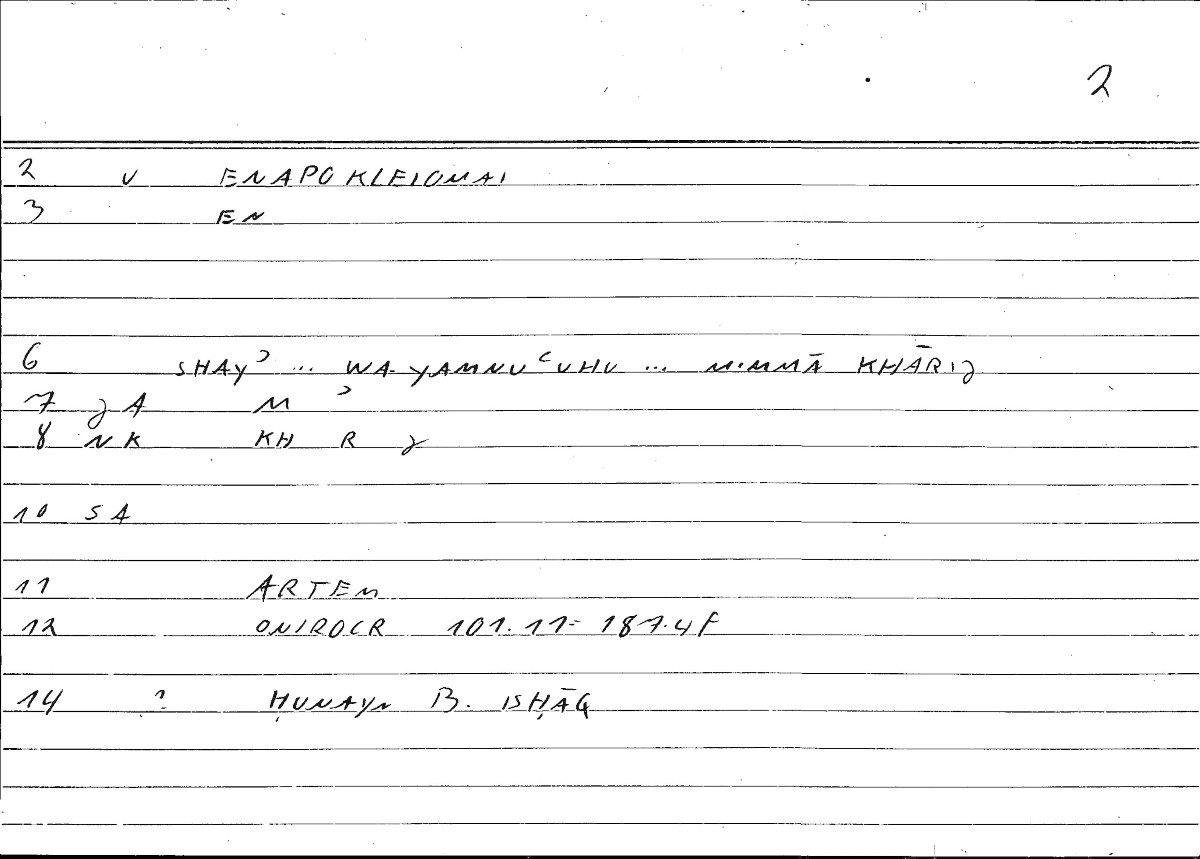 2
2 V ENAPOKLEIOMAI
3 EN
6 SHAYʾ ... WA-YAMNUʿUHU ... MIMMĀ KHĀRIJ
7 JA M ʾ
8 NK KH R J
10 SA
11 ARTEM
12 ONIROCR 101.11= 187.4F
14 ? ḤUNAYN B. ISḤĀQ